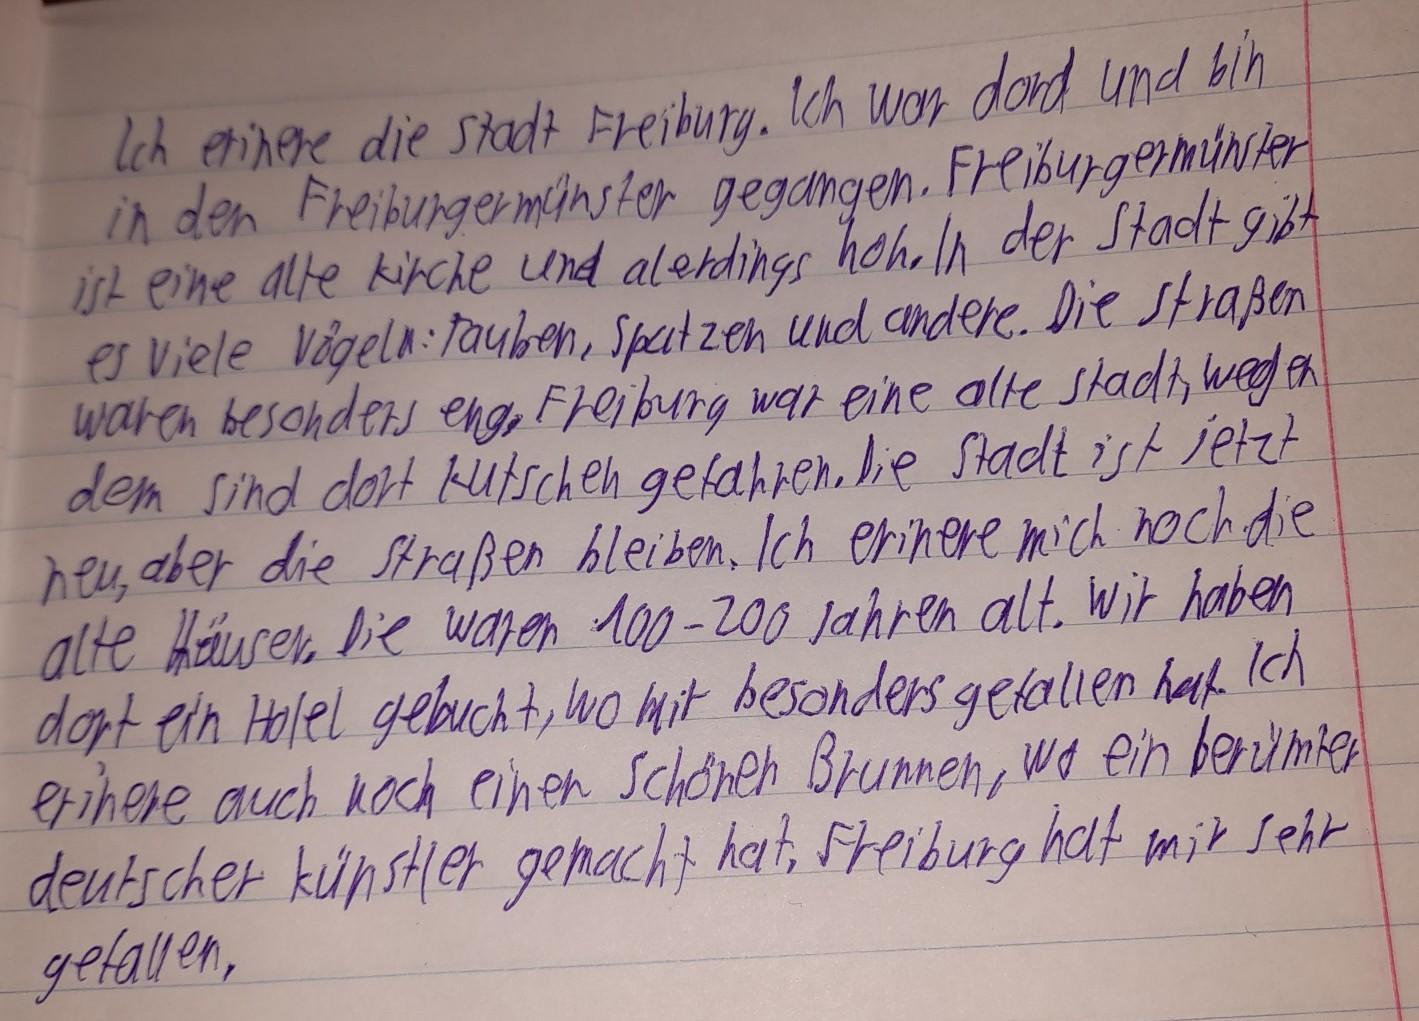 Ich erinere die Stadt Freiburg. Ich war dord und bin
in den Freiburgermünster gegangen. Freiburgermünster
ist eine alte Kirche und alerdings hoh. In der Stadt gibt
es viele Vögeln: Tauben, Spatzen und andere. Die Straßen
waren besonders eng. Freiburg war eine alte Stadt, wegen
dem sind dort Kutschen gefahren. Die Stadt ist jetzt
neu, aber die Straßen bleiben. Ich erinere mich noch die
alte Häuser. Die waren 100-200 Jahren alt. Wir haben
dort ein Hotel gebucht, wo mir besonders gefallen hat. Ich
erinere auch noch einen schönen Brunnen, wo ein berümter
deutscher Künstler gemacht hat. Freiburg hat mir sehr
gefallen.